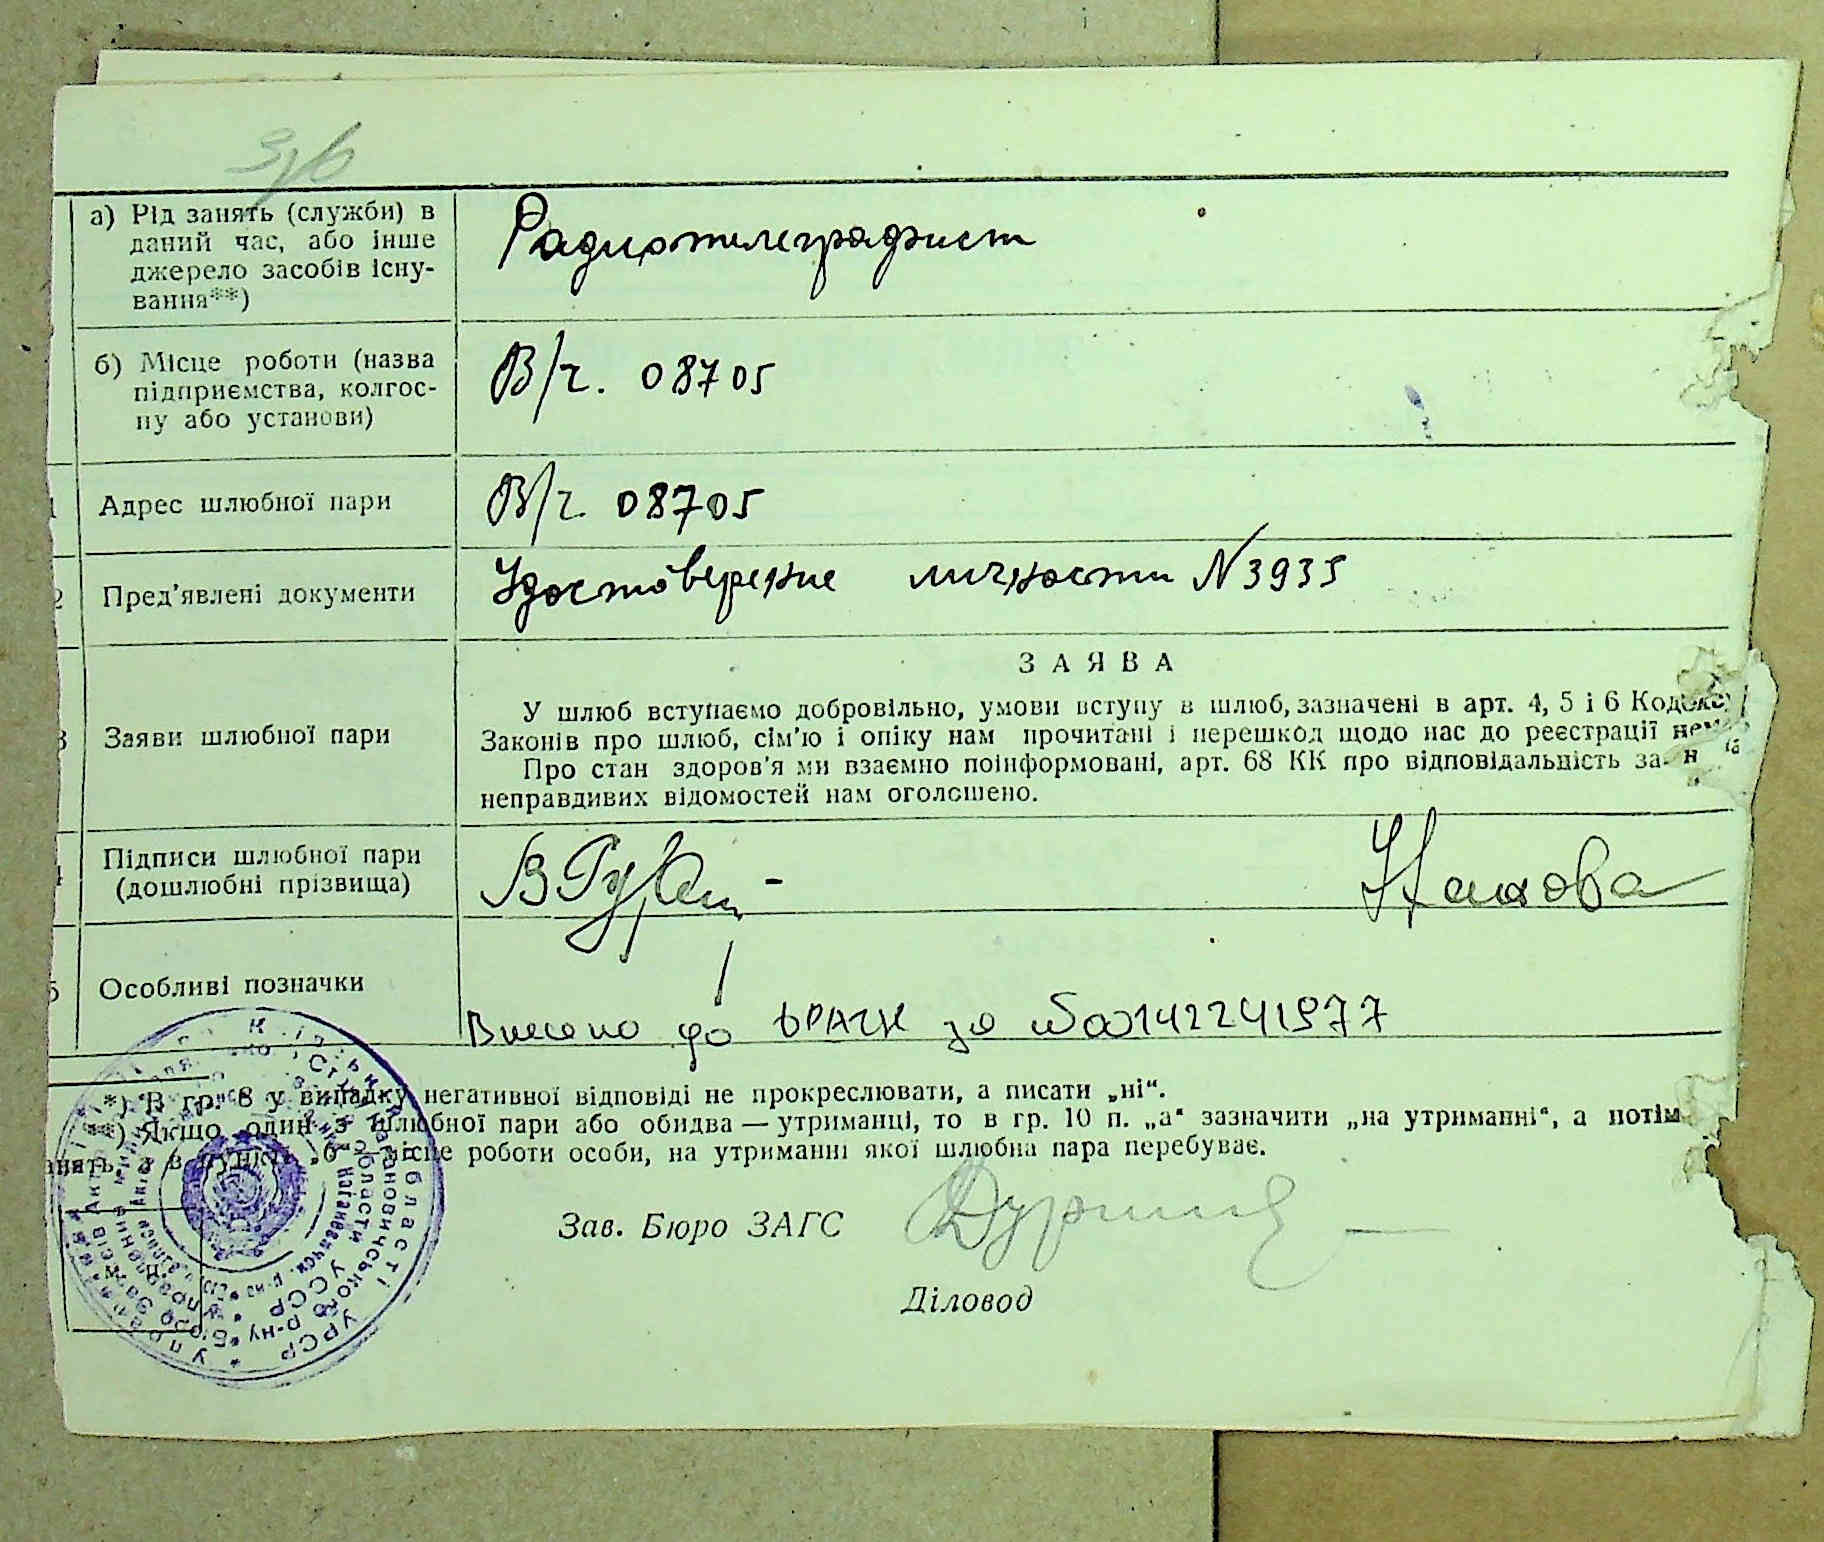 а) Рід занять (служби) в
даний час, або інше
джерело засобів існу-
вання**)
Радиотелеграфист
б) Місце роботи (назва
підприємства, колгос-
пу або установи)
В/ч. 08705
Адрес шлюбної пари
В/ч. 08705
Пред'явлені документи
Удостоверение личности N 3935
ЗАЯВА
Заяви шлюбної пари
У шлюб вступаємо добровільно, умови вступу в шлюб, зазначені в арт. 4, 5 і 6 Кодексу
Законів про шлюб, сім'ю і опіку нам прочитані і перешкод щодо нас до реєстрації
Про стан здоров'я ми взаємно поінформовані, арт. 68 КК про відповідальність за
неправдивих відомостей нам оголошено.
Підписи шлюбної пари
(дошлюбні прізвища)
Особливі позначки
Внесено до ДРАЦС за №00142241977
*) В гр. 8 у випадку негативної відповіді не прокреслювати, а писати „ні“.
**) Якщо один з шлюбної пари або обидва — утриманці, то в гр. 10 п. „а“ зазначити „на утриманні“, а потім
а в пункті „б“ місце роботи особи, на утриманні якої шлюбна пара перебуває.
Зав. Бюро ЗАГС
Діловод